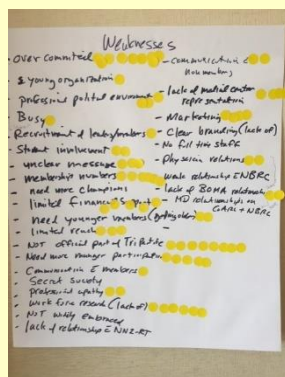 Weaknesses
- over commited
- young organization
- professional political environment
- Busy
- Recruitment of leaders/members
- Student involvement
- unclear message
- membership numbers
- need more champions
- limited financial
- need younger members
- limited reach
- NOT official part of Tripartite
- Need more manager participation
- Communication c̄ members
- Secret society
- professional apathy
- work force research (lack of)
- NOT widely embraced
- lack of relationship c̄
- communication c̄ nonmembers
- lack of medical center representation
- Marketing
- Clear branding (lack of)
- No full time staff
- Physician relations
- weak relationship c̄ NBRC
- lack of BOMA relationship
- MD relationships on CoARC + NBRC